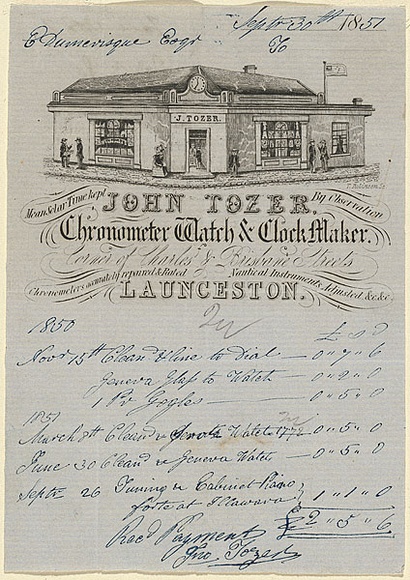 Septr 30th 1851
E Dumaresque Esqr
To
J. TOZER.
Mean Solar Time kept By Observation
JOHN TOZER.
Chronometer Watch & Clock Maker.
Corner of Charles & Brisbane Streets
Chronometers accurately repaired & Rated Nautical Instruments Adjusted &c &c.
LAUNCESTON.
1850
£ s d
Novr 15th Clean & line to Dial — 0 " 7 " 6
Geneva Glass to Watch — 0 " 2 " 0
1 Pr Goggles — 0 " 5 " 0
1851
March 8th Clean & Watch 1772 0 " 5 " 0
June 30 Clean & Geneva Watch — 0 " 5 " 0
Septr 26 Tuning & Cabinet Piano
forte at Illawarra 1 " 1 " 0
£ 2 " 5 " 6
Recd Payment
Jno. Tozer